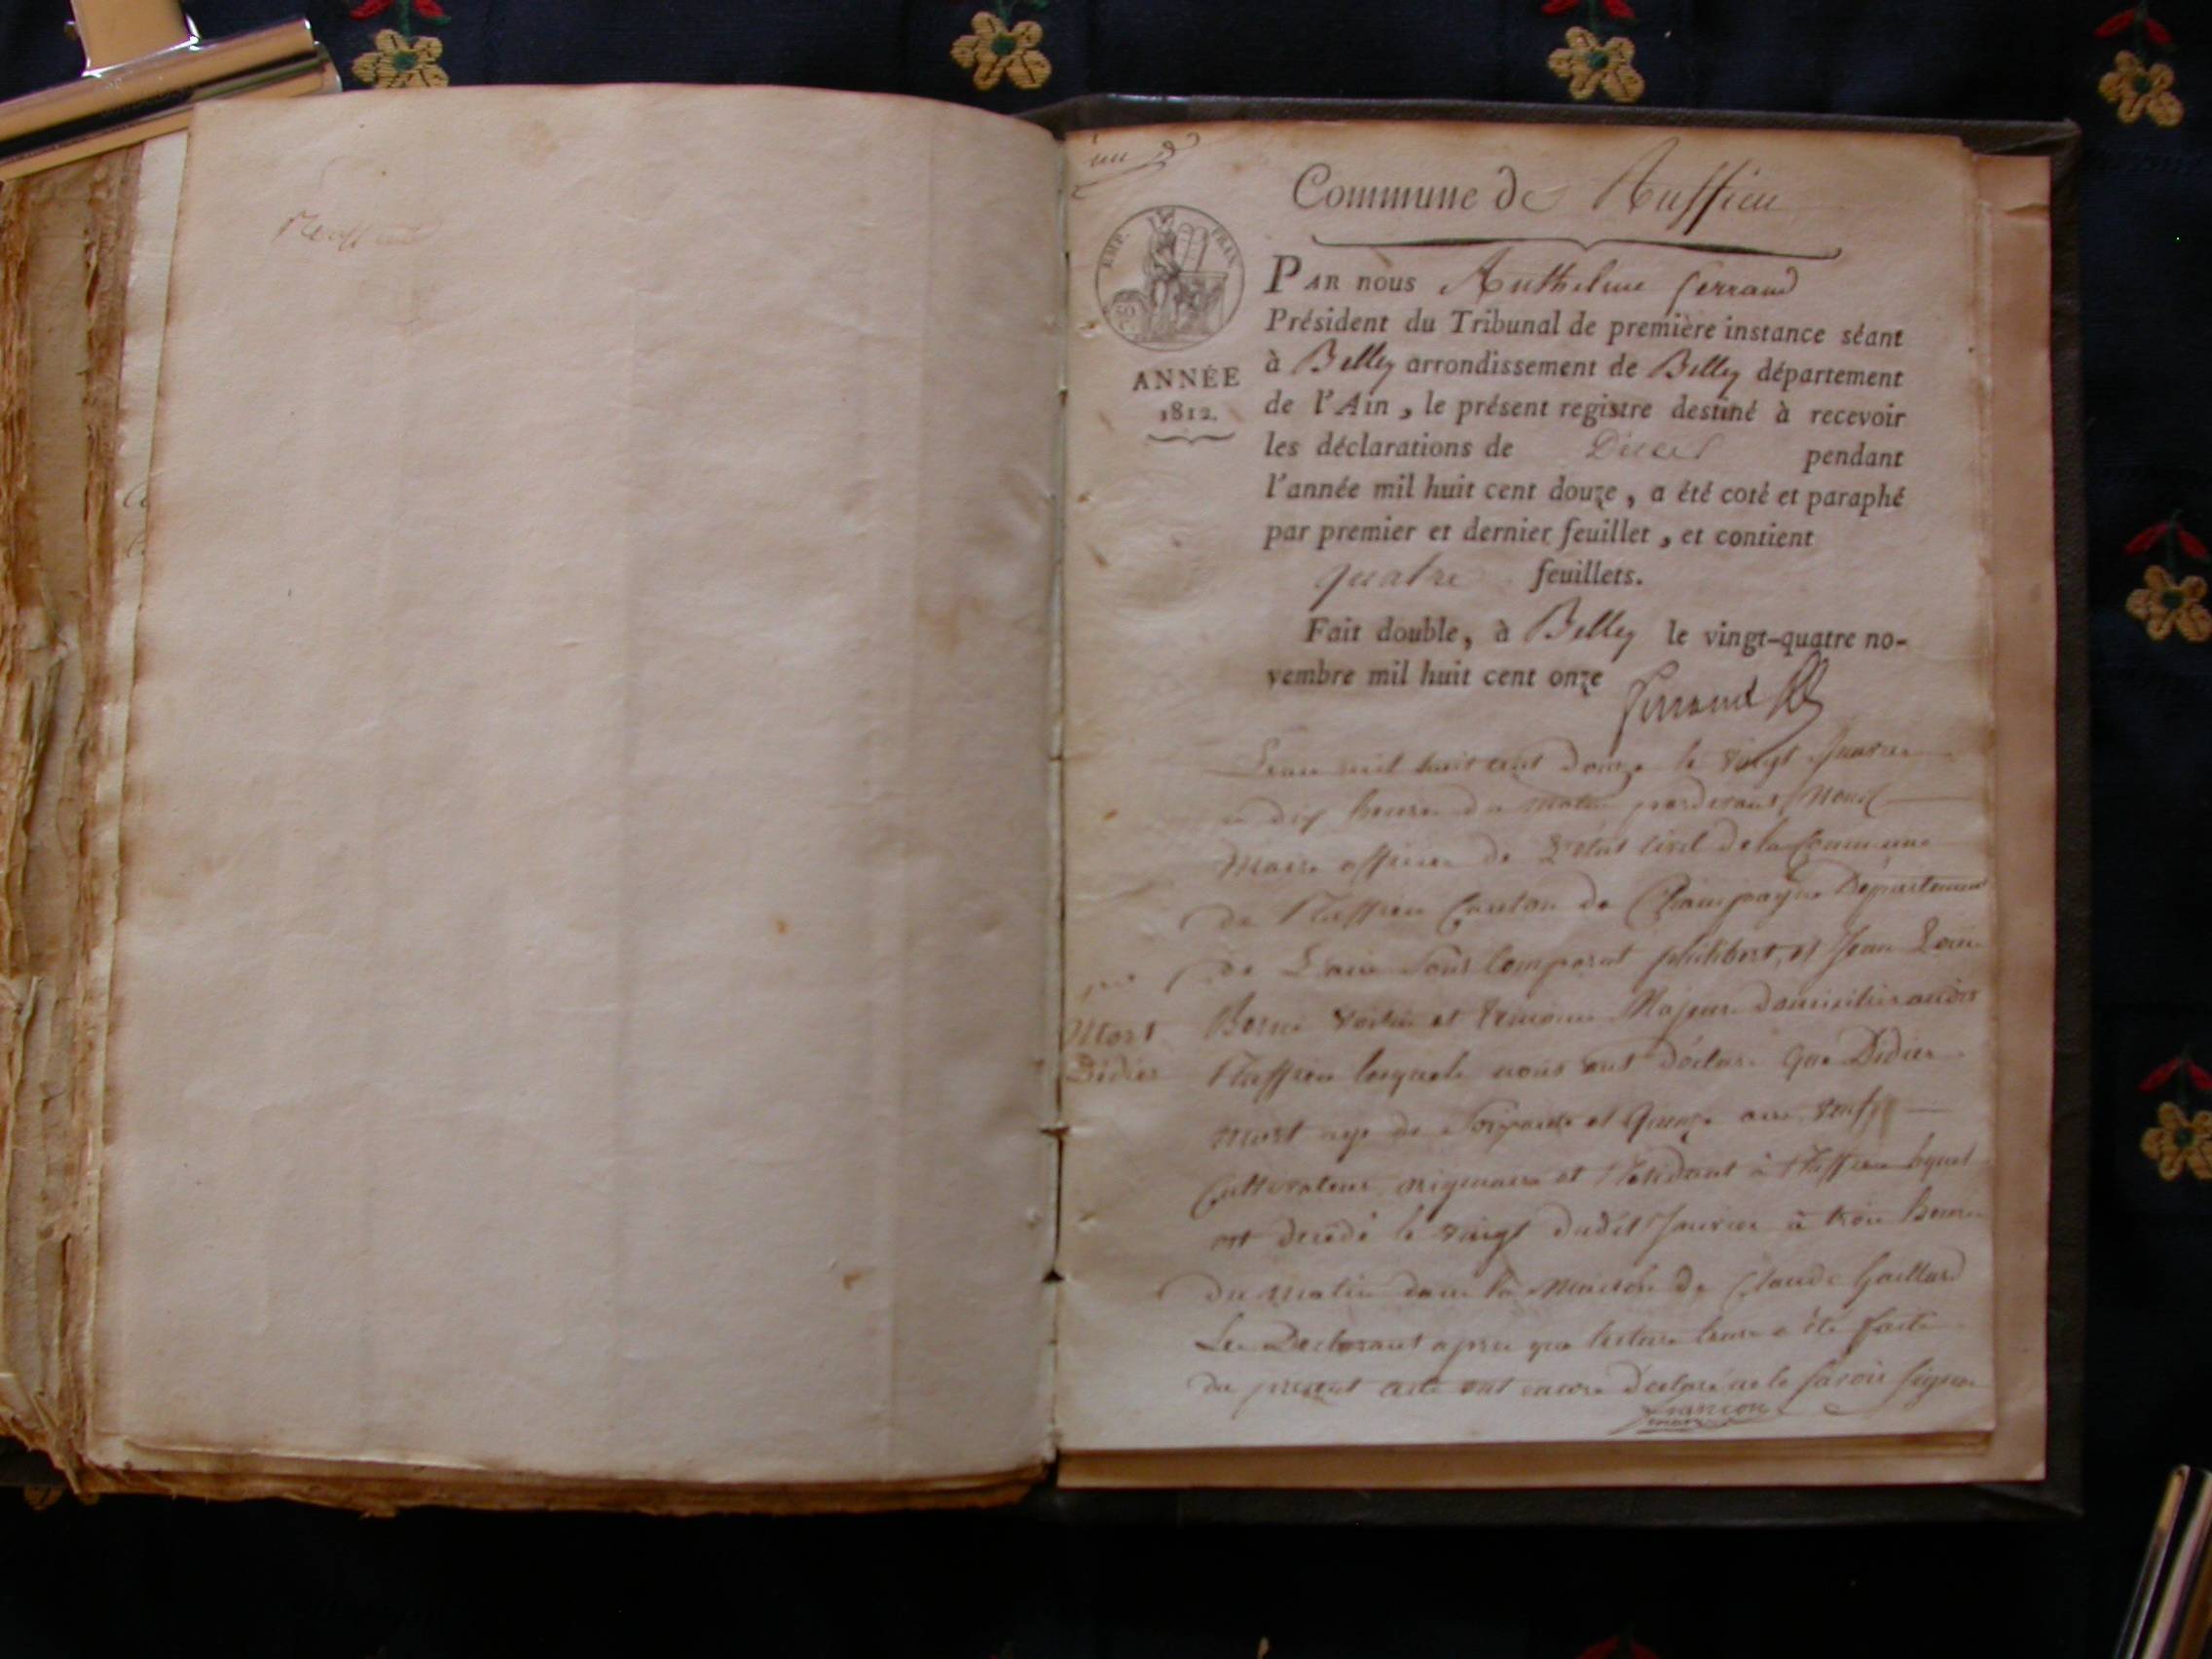 Ruffieu
un
Commune de Ruffieu
EMP. FRAN.
50
ANNÉE
1812.
PAR nous Anthelme ferrand
Président du Tribunal de première instance séant
à Belley arrondissement de Belley département
de l'Ain, le présent registre destiné à recevoir
les déclarations de Décès pendant
l'année mil huit cent douze, a été coté et paraphé
par premier et dernier feuillet, et contient
quatre feuillets.
Fait double, à Belley le vingt-quatre no-
vembre mil huit cent onze
ferrand
L'an mil huit cent douze le vingt Janvier
a dix heures du matin pardevant Nous
Maire officier de l'état civil de la Commune
de Ruffieu Canton de Champagne Département
de L'ain sont comparut philibert, et Jean Louis
Mort
Didier
Borni voisin et temoins Majeurs domiciliés audit
Ruffieu lesquels nous ont déclaré que Didier
mort age de Soixante et quinze ans veuf
Cultivateur originaire et Residant à Ruffieu lequel
est decédé le vingt dudit Janvier à trois heures
du matin dans la Maison de Claude Gaillard
Les Declarant apres que lecture leur a été faite
du present acte ont encore déclaré ne le savoir signer
francon
maire